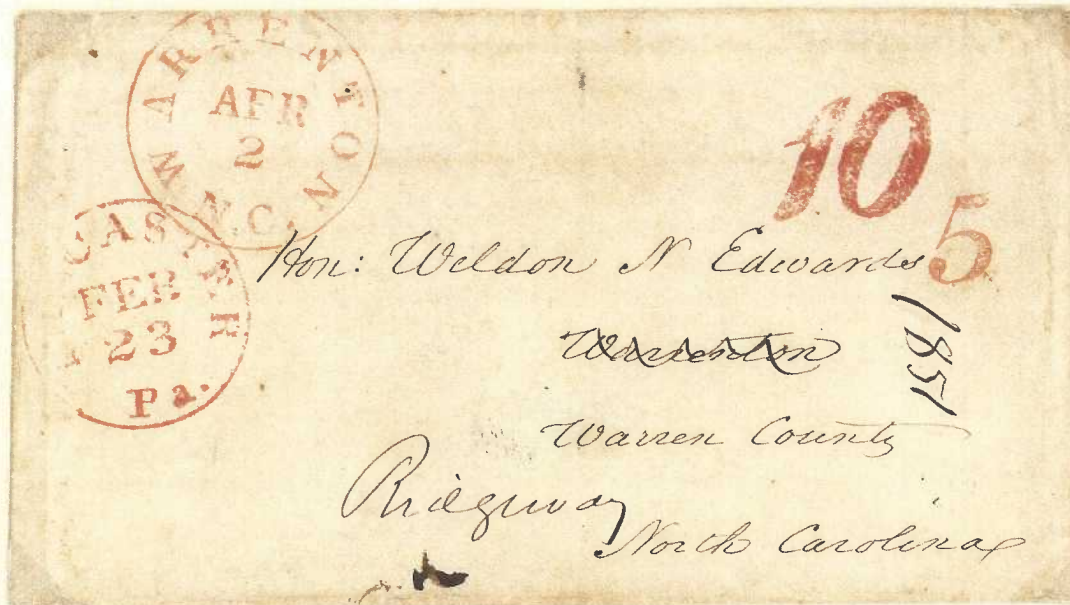 WARRENTON
APR
2
N.C.
10
5
CASTER
FEB
23
Pa.
Hon: Weldon N Edwards
Warrenton
1851
Warren County
Ridgeway
North Carolina